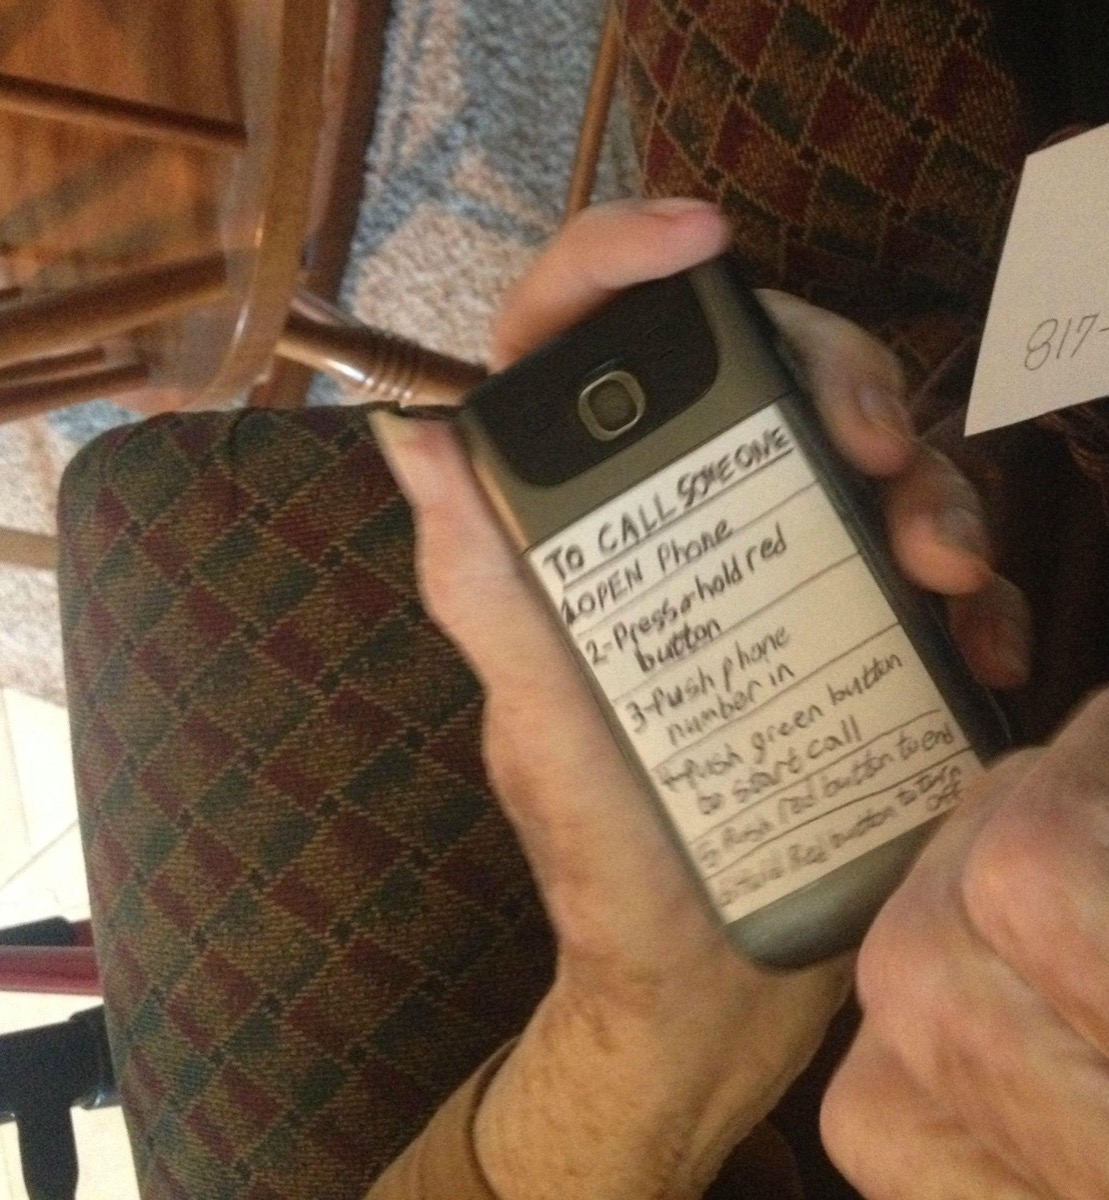 TO CALL SOMEONE
1 OPEN Phone
2-Press & hold red
button
3-Push phone
number in
4-Push green button
to start call
5-Push red button to end
6-Hold Red button to turn
off
817-